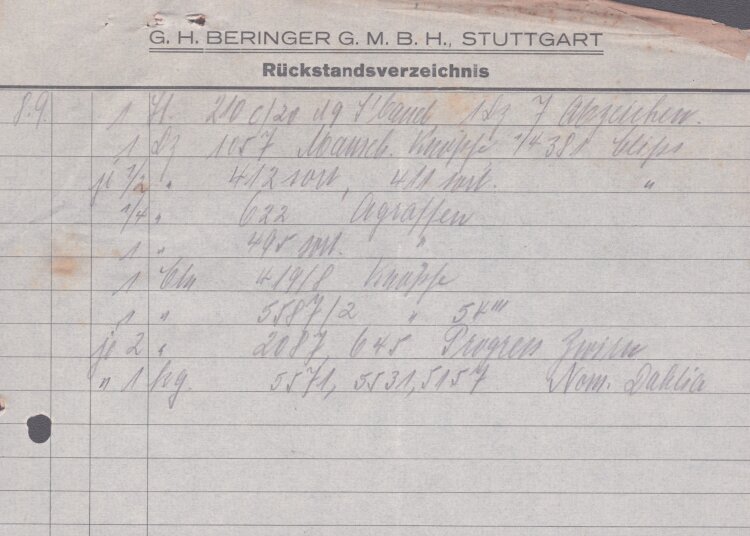 G. H. BERINGER G. M. B. H., STUTTGART
Rückstandsverzeichnis
8.9. 1 St. 210 c/20 1 Dz 7 Abzeichen.
1 Dz 1057 Mansch. Knöpfe 1/4 381 Clips
je 1/2 " 412 sort, 411 sort. "
1/4 " 622 Agraffen
1 " 495 sort. "
1 419/8 Knöpfe
1 " 5587/2 " 54'''
je 2 " 2087, 645 Progress Zwirn
" 1 kg. 5571, 5531, 5157 Dahlia